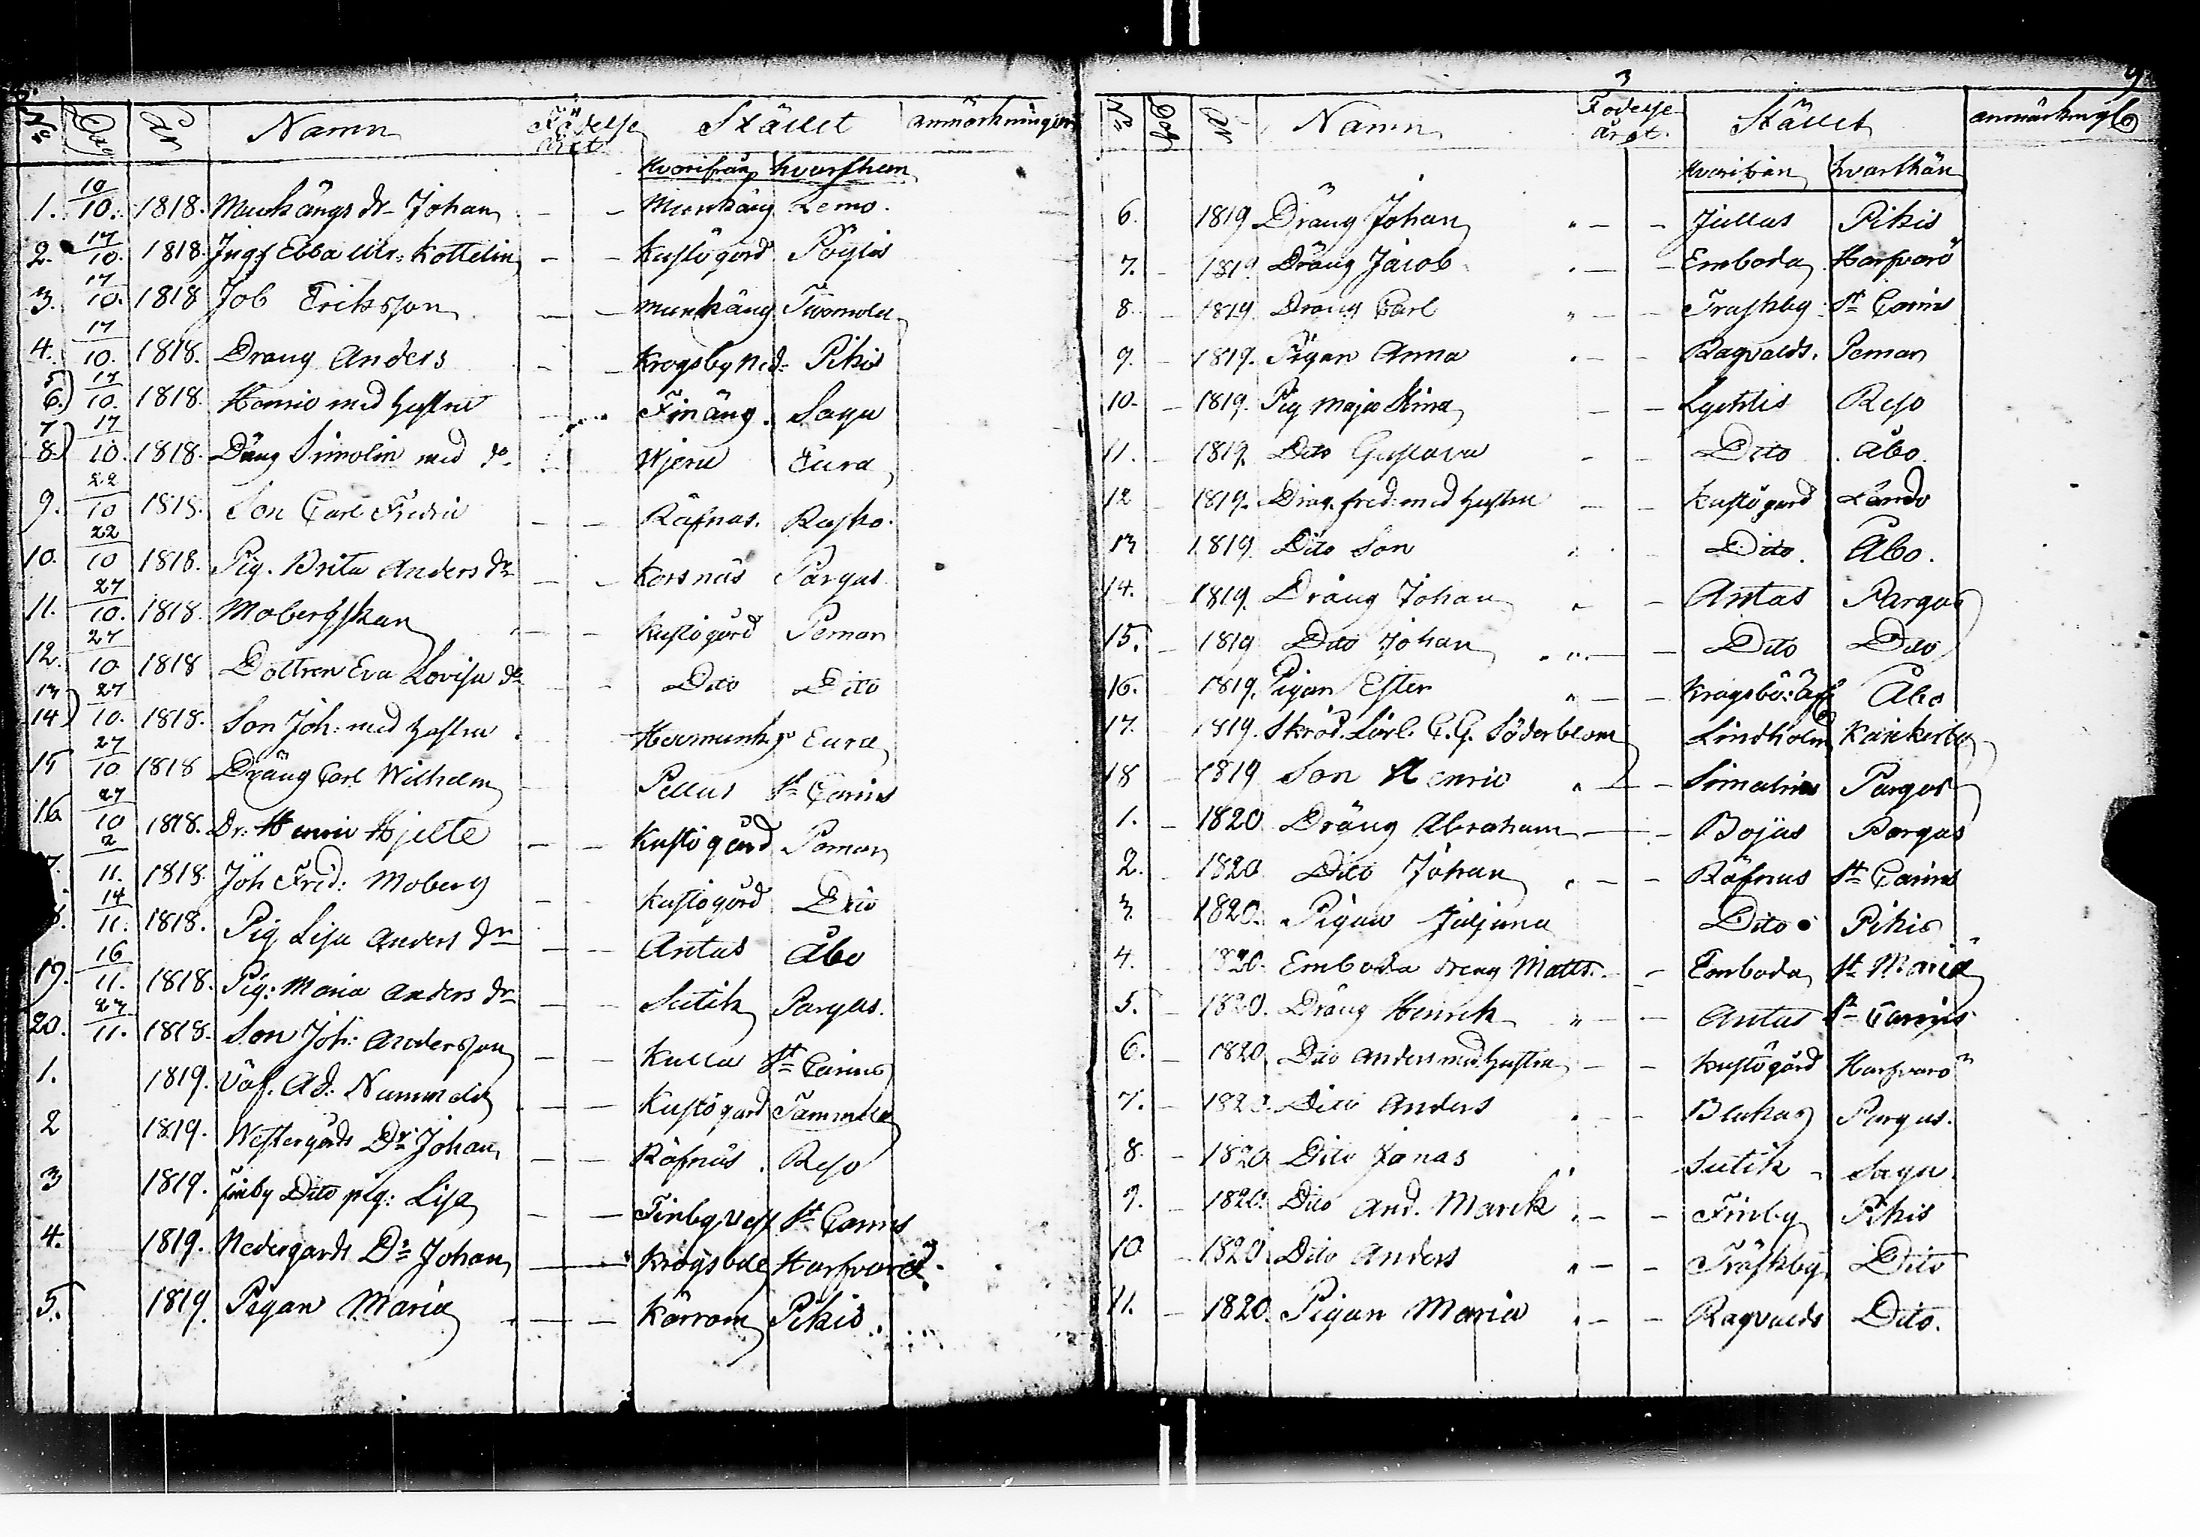 No Dag År Namn Födelse året Stället anmärkningar
Hvarifrån hvarthän
1. 10/10. 1818. Munkängs dr- Johan - - Munkäng Lemo.
2. 17/10. 1818. Jngf Ebba Ulr: Kottelin - - Kustö gård Pöytis
3. 17/10. 1818 Job Eriksson - - Munkäng
4. 17/10. 1818. Drang Anders - - Krogsby Ned: Pikis
5. 6.) 17/10. 1818. Henric med hustru Finäng. Sagu
7 8.) 17/10. 1818. Däng Simolin med do Hjeru Eura
9. 22/10 1818. Son Carl Fredric - - Räfnas. Rusko.
10. 22/10 1818. Pig. Brita Anders dr - - Korsnäs Pargas
11. 27/10. 1818. Mobergskan - - Kustö gård Pemar
12. 27/10 1818 Dottren Eva Lovisa do - - Dito Dito
13 14) 27/10. 1818. Son Joh: med hustru Eura
15 27/10 1818 Dräng Carl Wilhelm - Pellas St Carins
16. 27/10 1818. Dr: Henric Hjelte - - Kustö gård Pemar
7. 2/11. 1818. Joh Fred: Moberg - - Kustö gård Dito
14/11. 1818. Pig Lisa Anders dr - - Antas Åbo
19. 16/11. 1818. Pig: Maria Anders dr - - Sutik Pargas.
20. 27/11. 1818. Son Joh: Andersson - - Kulla St Carins
1. 1819. Väf. Ad: Nummelin - - Kustö gård Tammela
2 1819. Westergårds Dr Johan - - Räfnäs. Reso
3 1819. Finby Dito pig: Lisa - - Finby Vest St Carins
4. 1819. Nedergards Dr Johan Krogsbol Harfvarö
5. 1819. Pigan Maria - - Kärrom Pikis.
9.
No Dag År Namn Födelse Året. Stället anmärkning
Hvarifrån hvarthän
6. 1819 Dräng Johan - - Jullas Pikis
7. - 1819 Dräng Jacob - - Emboda Harfvarö
8. 1819 Drang Carl - - Träskby St Carins
9. - 1819. Pigan Anna - - Ragvalds. Pemar
10. - 1819. Pig Maja Stina - - Reso
11. - 1819. Dito Gustava - - Dito Åbo
12 1819. Dräg. fred: med hustru - - Kustö gård
13 1819. Dito Son Dito. Åbo.
14. 1819. Dräng Johan - Antas Pargas
15. - 1819 Dito Johan - Dito Dito
16. - 1819. Pigan Ester - - Åbo
17. 1819. Skräd. Lärl. C. G. Söderblom Lindholm Kankerby
18 - 1819 Son Henric - - Pargas
1. - 1820. Dräng Abraham - - Bojäs Pargas
2. - 1820. Dito Johan - - Räfnas St Carins
3. 1820. Pigan Juljana Dito Pikis
4. 1820. Emboda dreng Matts. - - Emboda St Mariæ
5. - 1820. Dräng Henrik - - Antas St Carins
6. - 1820. Dito Anders med hustru - - Kustö gård Harfvarö
7. - 1820. Dito Anders - - Pargas.
8. - 1820. Dito Jonas Sutik Sagu.
9. - 1820. Dito And. Marck - - Finby Pikis
10. - 1820. Dito Anders - - Träskby Dito
11. - 1820. Pigan Maria - - Ragvalds Dito.